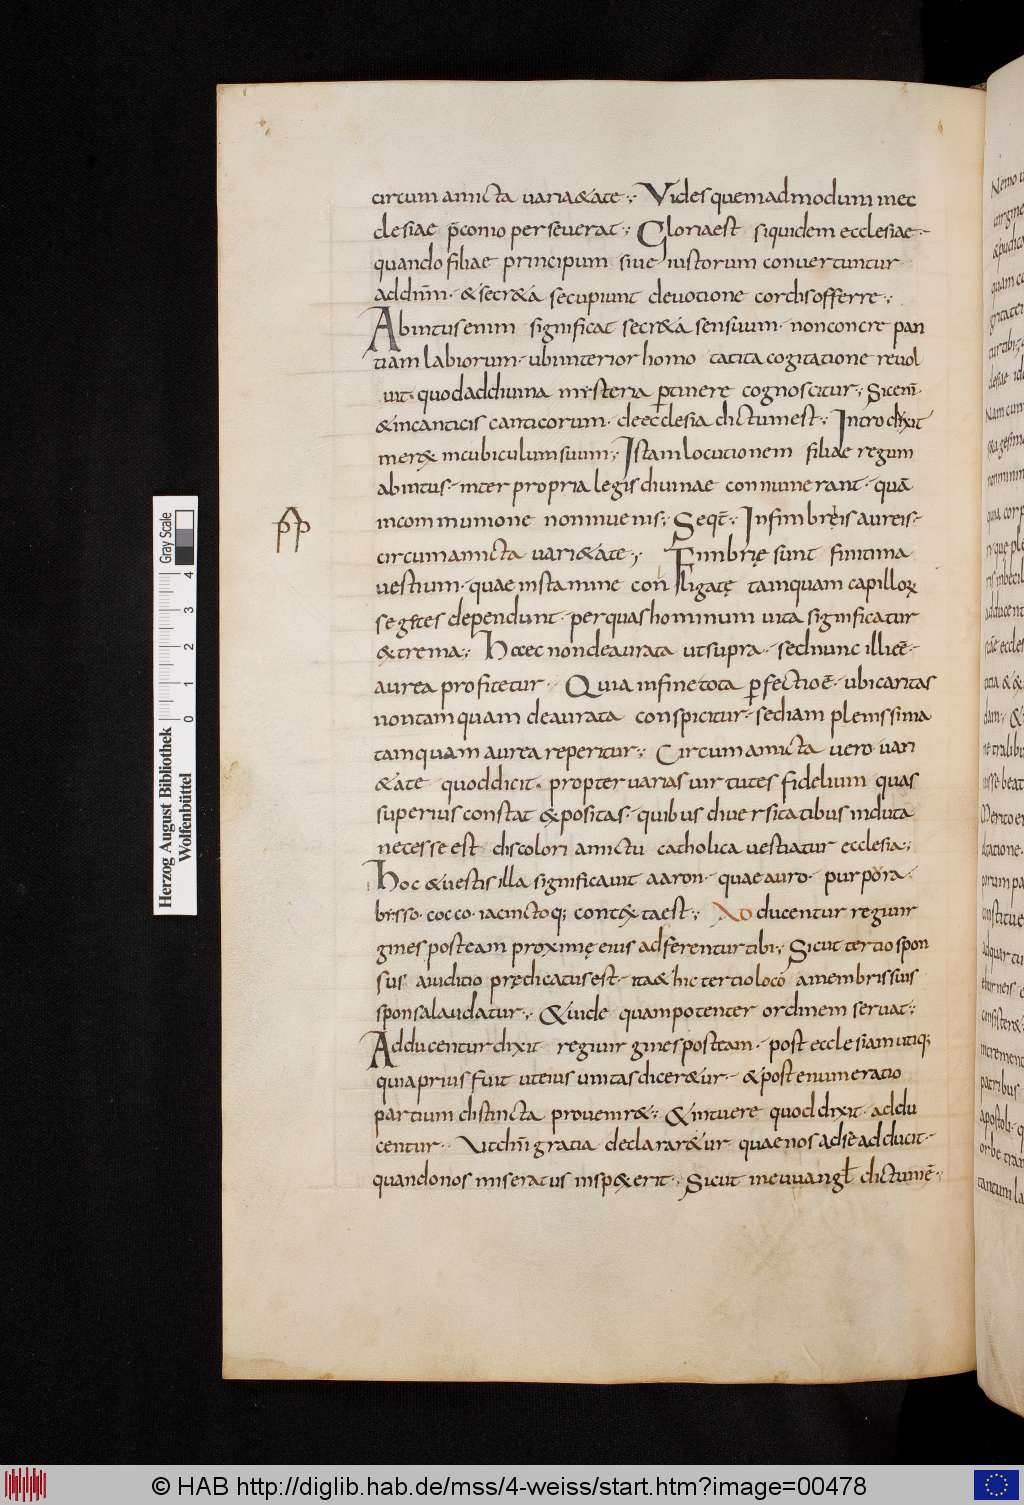 circum amicta uari&ate ·, Uides quemadmodum inec
clesiae p̄conio perseuerat ·, Gloria est siquidem ecclesiae ·
quando filiae principum siue iustorum conuertuntur
ad dn̄m · & secr&a se cupiunt deuotione cordis offerre ·,
Ab intus enim significat secr&a sensuum · non concrepan
tiam labiorum · ubi interior homo tacita cogitatione reuol
uit · quod ad diuina mysteria ꝑtinere cognoscitur ·, Sic eni͂ ·
& in canticis canticorum · de ecclesia dictum est ·, Introduxit
me rex in cubiculum suum ·, Istam locutionem filiae regum
ab intus · inter propria legis diuinae connumerant · quā
in communione non inuenis ·, Seqt̄ ·, In fimbrieis aureis ·
circum amicta uari&ate ·, Fimbrię sunt finitima
uestium · quae in stamine con ligatę tamquam capilloꝝ
segetes dependunt · per quas hominum uita significatur
extrema ·, Haec non deaurata ut supra · sed nunc illic ē ·
aurea profitetur · Quia in fine tota ꝑfectio ē · ubi caritas
non tamquam deaurata conspicitur · sed iam plenissima
tamquam aurea reperitur ·, Circum amicta uero uari
&ate quod dicit · propter uarias uirtutes fidelium quas
superius constat expositas · quibus diuersitatibus induta
necesse est discolori amictu catholica uestiatur ecclesia ·,
Hoc & uestis illa significauit aaron · quae auro · purpora ·
bisso · cocco · iacinctoq; contexta est ·, Adducentur regi uir
gines post eam proximę eius adferentur tibi ·, Sicut tertio spon
sus auditio prędicatus est · ita & hic tertio loco a membris suis
sponsa laudatur ·, & uide quam potenter ordinem seruat ·,
Adducentur dixit regi uirgines post eam · post ecclesiam utiq;
quia prius fuit ut eius unitas dicer&ur · & post enumeratio
partium distincta prouenir& ·, & intuere quod dixit · addu
centur · Ut dn̄i gratia declarar&ur quae nos ad se adducit ·
quando nos miseratus inspexerit · Sicut in euuangł dictum ē ·
pp
Gray Scale
4 3 2 1 0
Herzog August Bibliothek
Wolfenbüttel
© HAB http://diglib.hab.de/mss/4-weiss/start.htm?image=00478